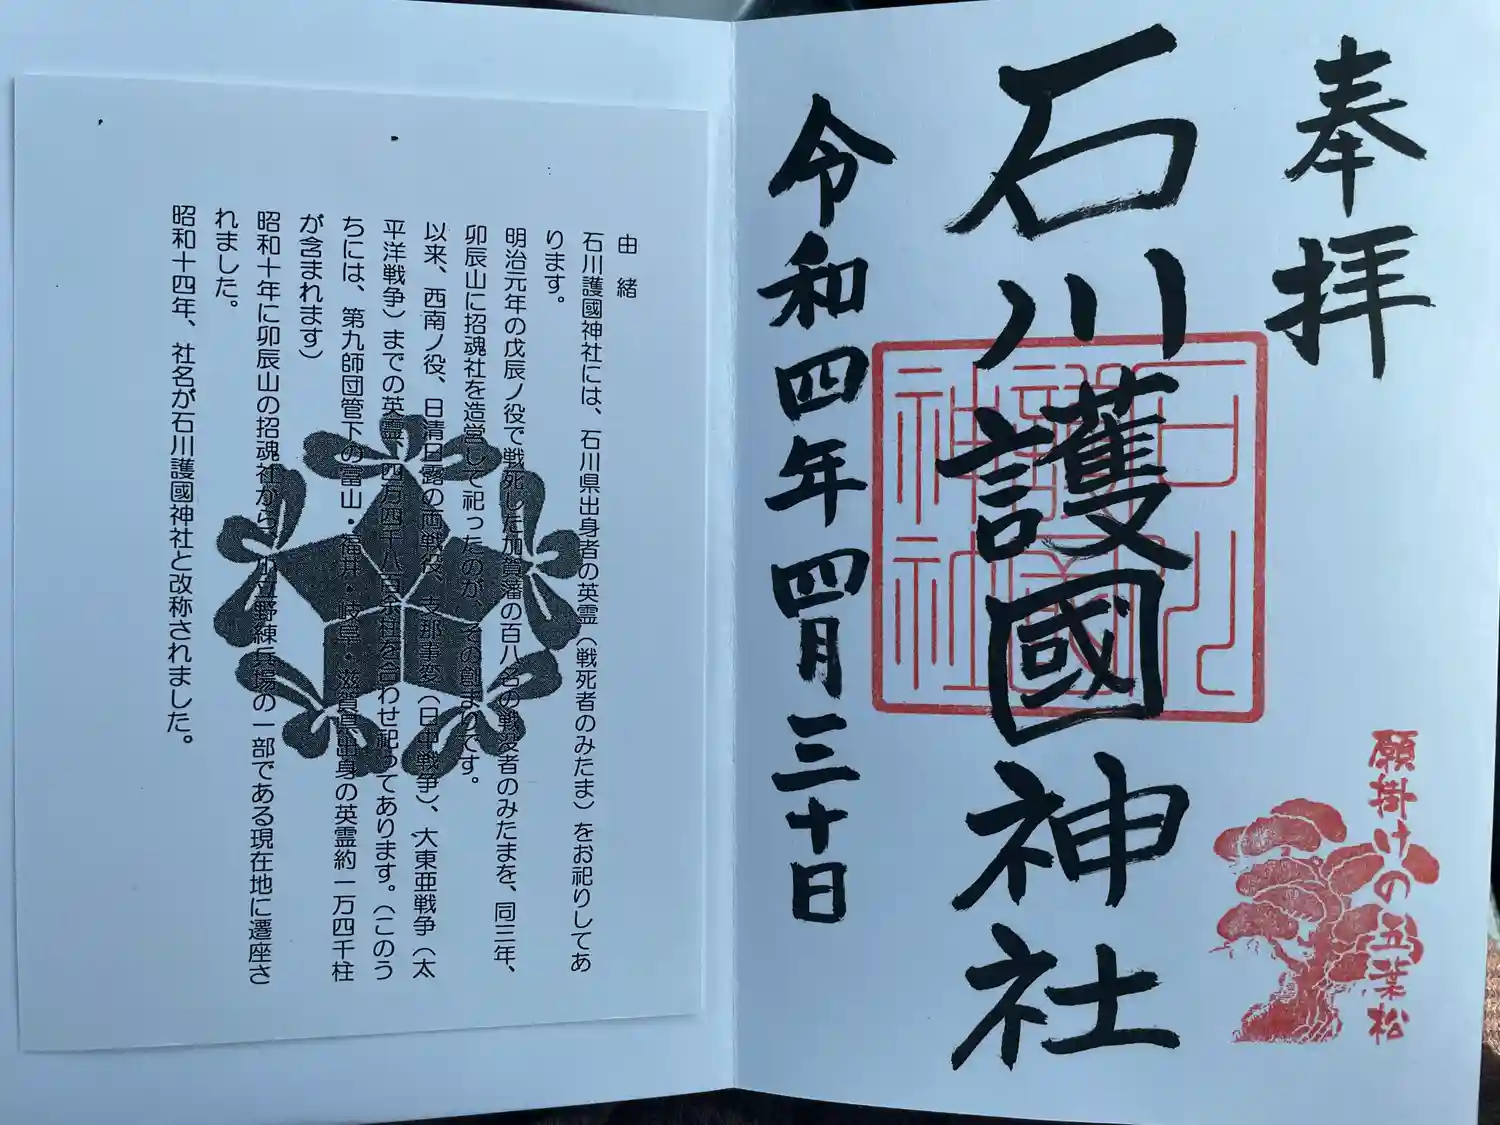 奉拝
石川護國神社
令和四年四月三十日
石川護國神社
願掛けの五葉松
由緒
石川護國神社には、石川県出身者の英霊（戦死者のみたま）をお祀りしてあ
ります。
明治元年の戊辰ノ役で戦死した加賀藩の百八名の戦没者のみたまを、同三年、
卯辰山に招魂社を造営して祀ったのが、その創まりです。
以来、西南ノ役、日清日露の両戦役、支那事変（日中戦争）、大東亜戦争（太
平洋戦争）までの英霊、四万四千八百余柱を合わせ祀ってあります。（このう
ちには、第九師団管下の富山・福井・岐阜・滋賀県出身の英霊約一万四千柱
が含まれます）
昭和十年に卯辰山の招魂社から、小立野練兵場の一部である現在地に遷座さ
れました。
昭和十四年、社名が石川護國神社と改称されました。